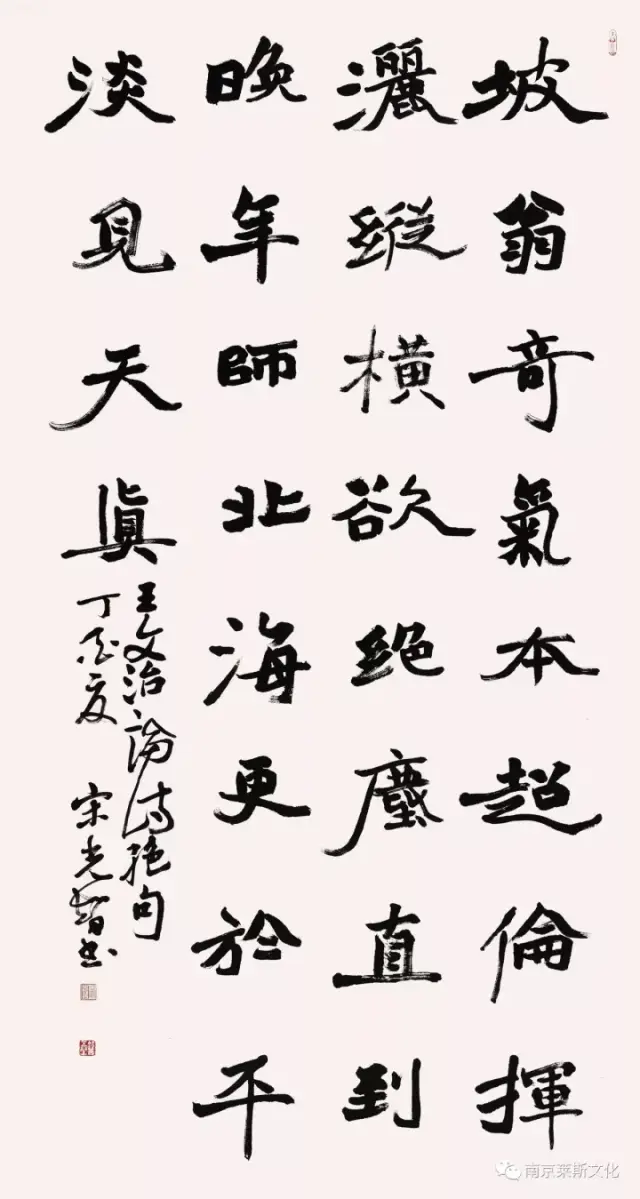 坡翁奇氣本超倫揮
灑縱橫欲絕塵直到
晚年師北海更於平
淡見天真
王文治論詩絕句
丁酉夏 宋光智书
南京莱斯文化